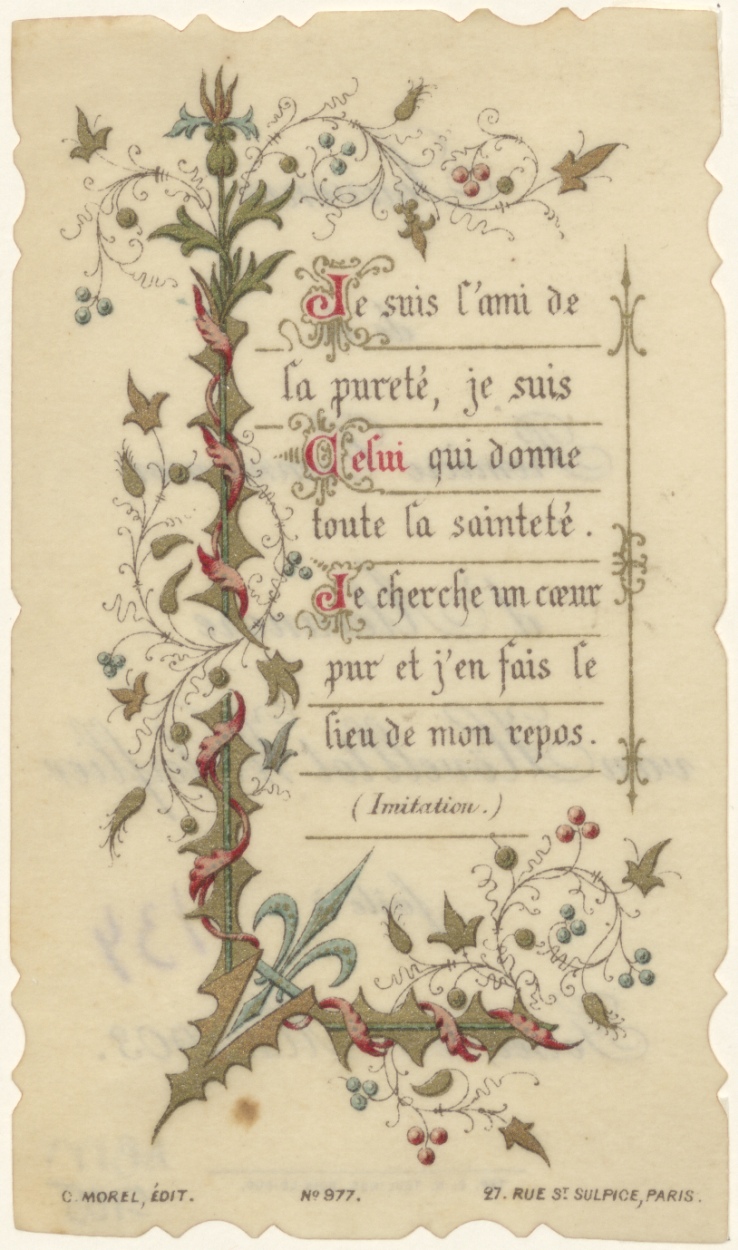 Je suis l'ami de
la pureté, je suis
Celui qui donne
toute la sainteté.
Je cherche un cœur
pur et j'en fais le
lieu de mon repos.
(Imitation.)
C. MOREL, ÉDIT. No 977. 27. RUE ST SULPICE, PARIS.